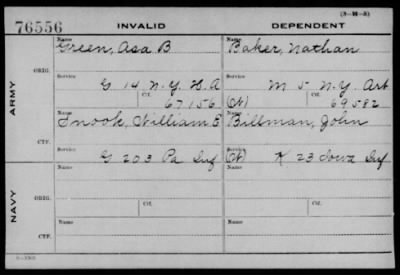 (3-98-8)
76556 INVALID DEPENDENT
Name Name
Green, Asa B Baker, Nathan
ORIG.
Service Service
G 14 N.Y. H.A M 5 N.Y. Art
Ctf. Ctf.
67156 (W) 69582
ARMY
Name Name
Snook, William E Billman, John
CTF.
Service Service
G 203 Pa Inf (W) K 23 Iowa Inf
Name Name
ORIG.
Service Ctf. Service Ctf.
NAVY
Name Name
CTF.